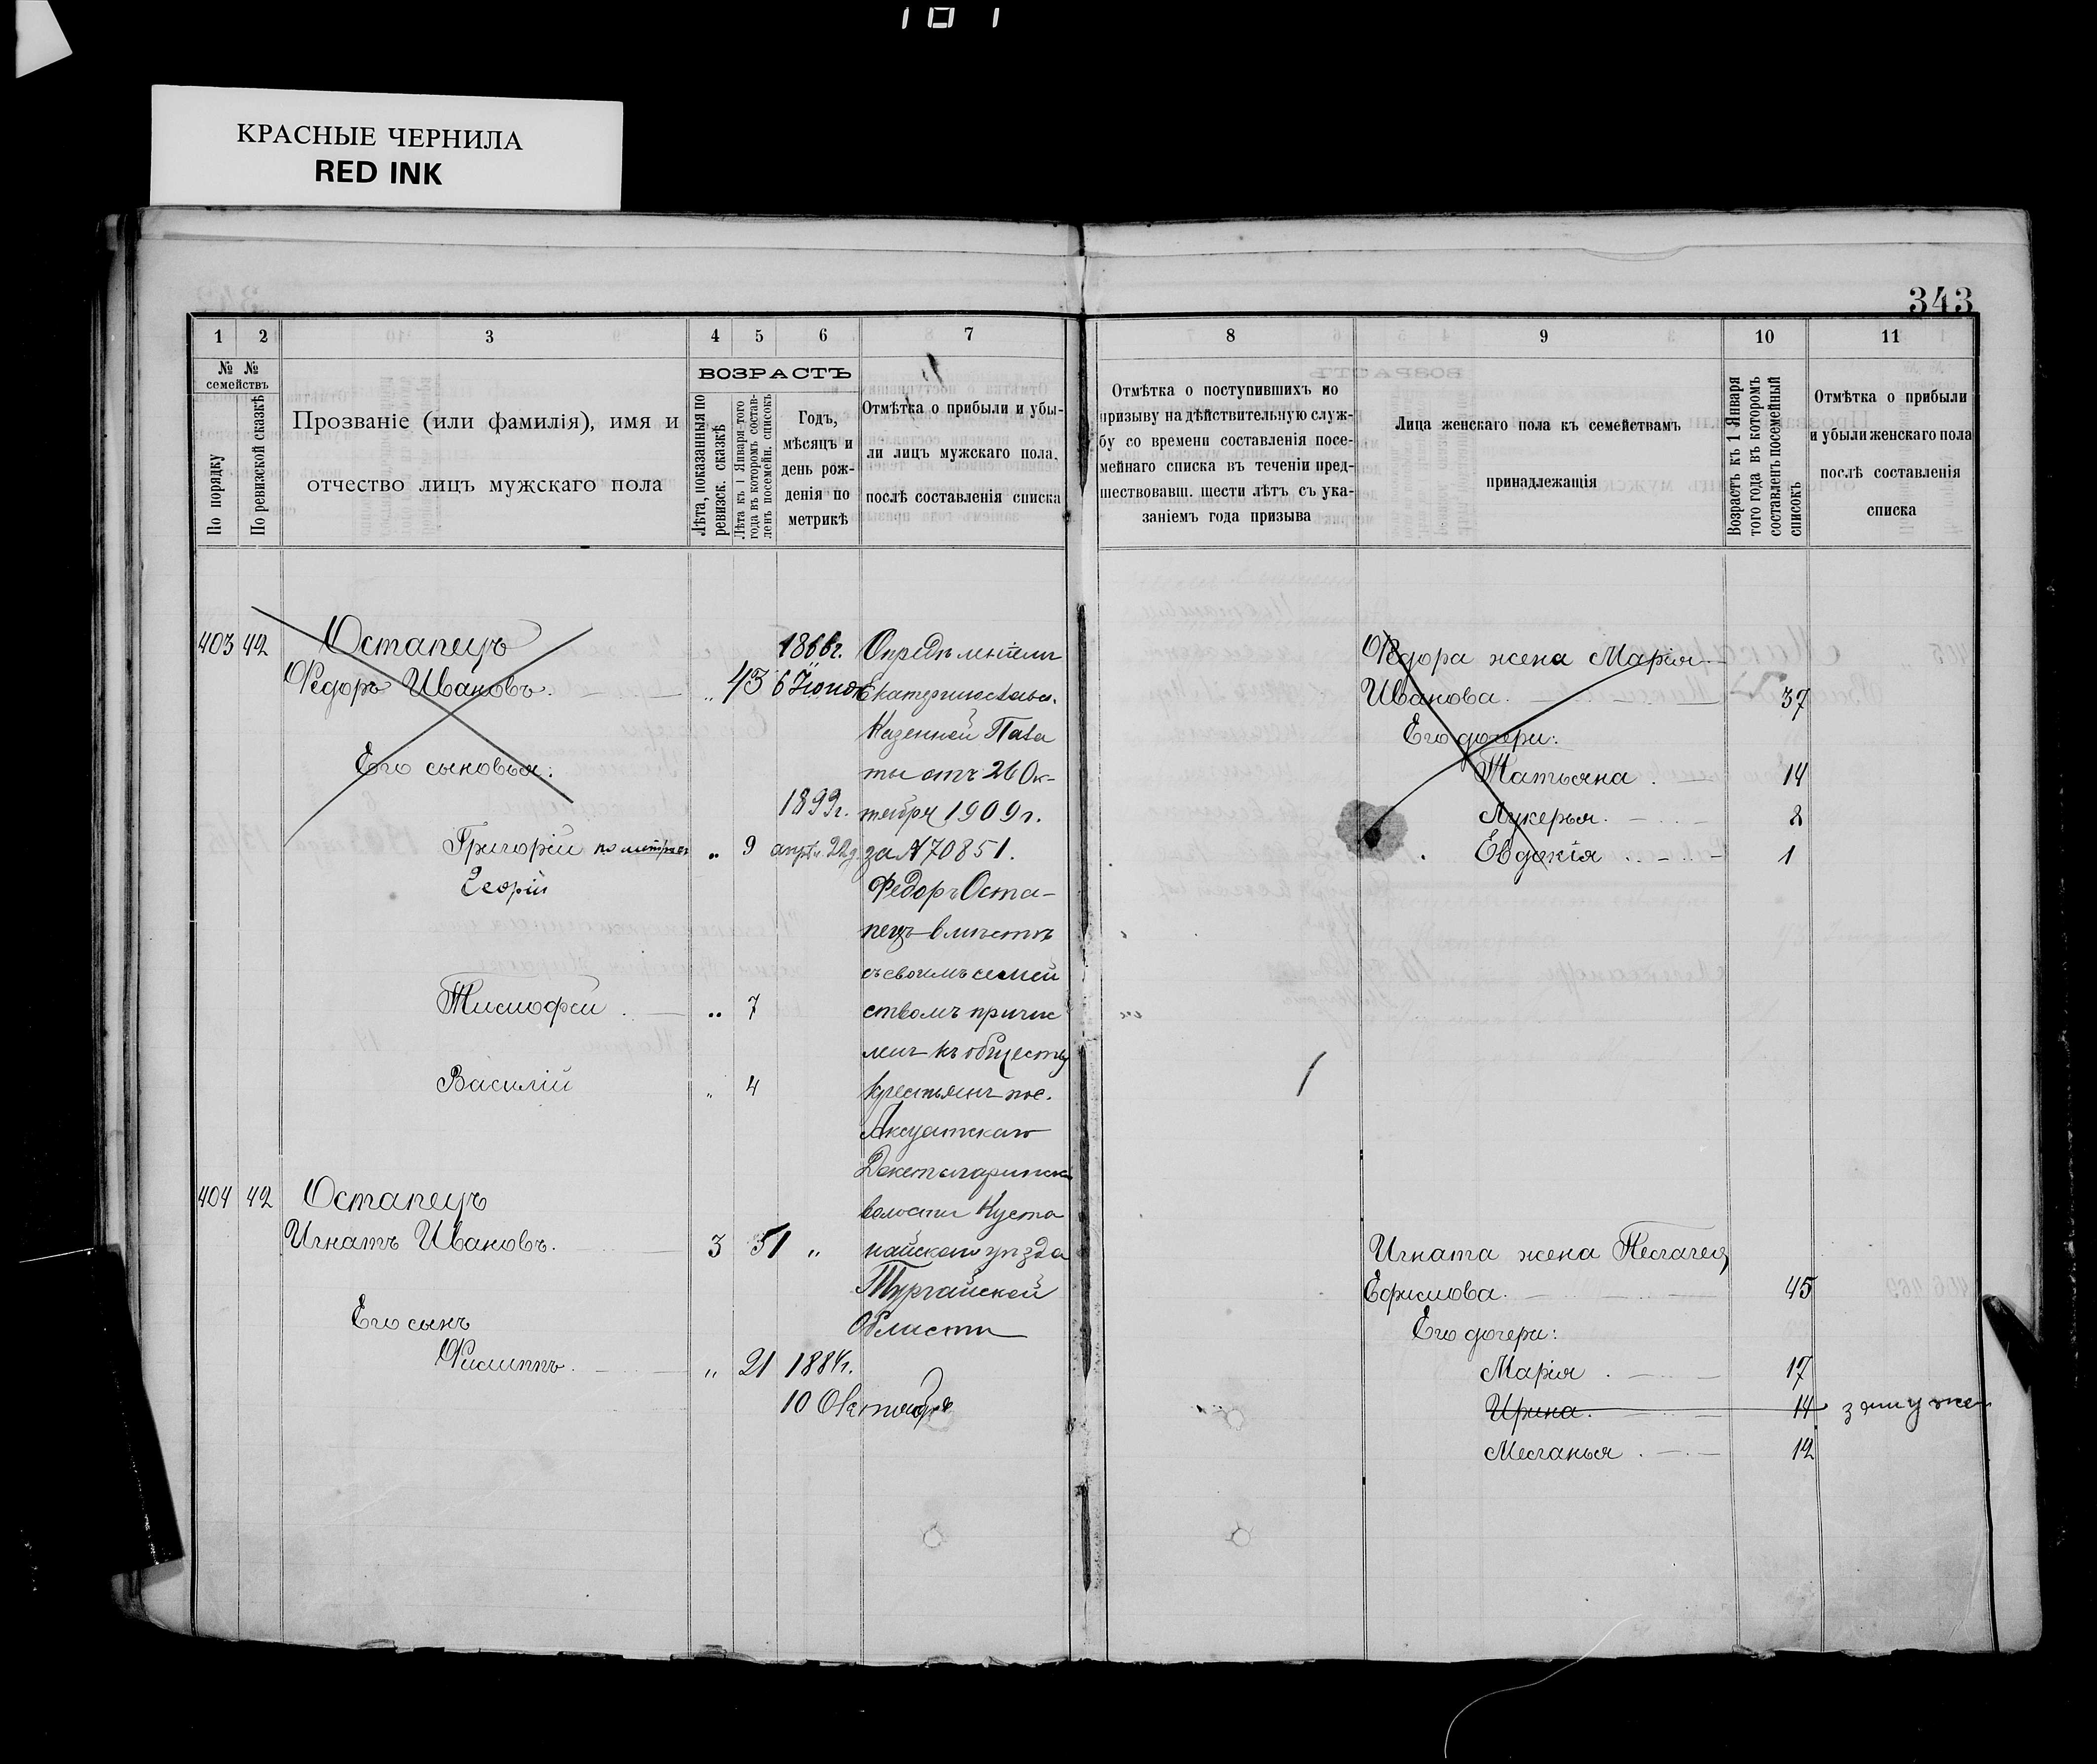 181
КРАСНЫЕ ЧЕРНИЛА
RED INK
343
1 2 3 4 5 6 7
№ № семействъ
По порядку
По ревизской сказкѣ
Прозваніе (или фамилія), имя и
отчество лицъ мужскаго пола
ВОЗРАСТЪ
Лѣта, показанныя по
ревизск. сказкѣ
Лѣта къ 1 Января того
года въ которомъ состав-
ленъ посемейн. списокъ
Годъ,
мѣсяцъ и
день рож-
денія по
метрикѣ
Отмѣтка о прибыли и убы-
ли лицъ мужскаго пола,
послѣ составленія списка
8 9 10 11
Отмѣтка о поступившихъ по
призыву на дѣйствительную служ-
бу со времени составленія посе-
мейнаго списка въ теченіи пред-
шествовавш. шести лѣтъ съ ука-
заніемъ года призыва
Лица женскаго пола къ семействамъ
принадлежащія
Возрастъ къ 1 Января
того года въ которомъ
составленъ посемейный
списокъ
Отмѣтка о прибыли
и убыли женскаго пола
послѣ составленія
списка
403 42 Остапецъ
Федоръ Ивановъ. „ 43
1866г.
6 Іюня
Его сыновья:
Григорій по метрикѣ „ 9
1899г.
апрѣл. 22 д.
Георгій
Тимофей „ 7
Василій „ 4
Опредѣленіемъ
Екатеринослав.
Казенной Пала
ты отъ 26 Ок-
тября 1909г.
за № 70851.
Федоръ Оста-
пецъ вмѣстѣ
съ своимъ семей
ствомъ причис
ленъ къ обществу
крестьянъ пос.
Аксуатскаго
волости Куста
найскаго уѣзда
Тургайской
Области
404 42 Остапецъ
Игнатъ Ивановъ. 3 51 „
Его сынъ
Филиппъ. „ 21 1884г.
10 Октября
Федора жена Марія
Иванова. 37
Его дочери:
Татьяна. 14
Лукерья. 8
Евдокія 1
Игната жена Пелагея
Ефимова. 45
Его дочери:
Марія. 17
Ирина. 14 замужем
Меланья. 12